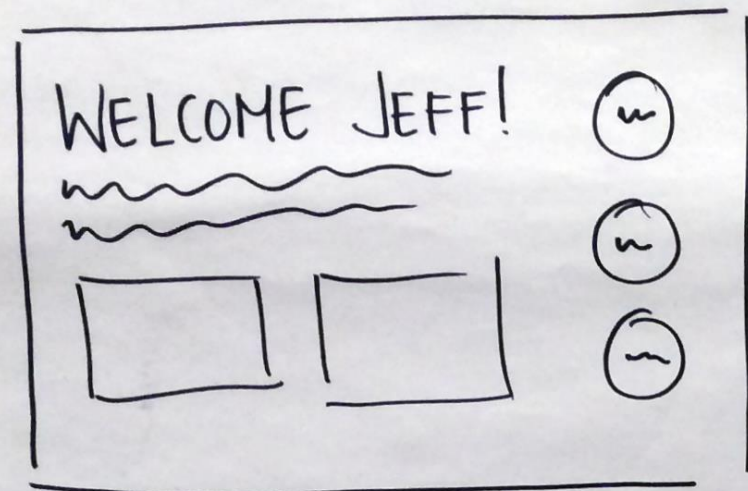 WELCOME JEFF!